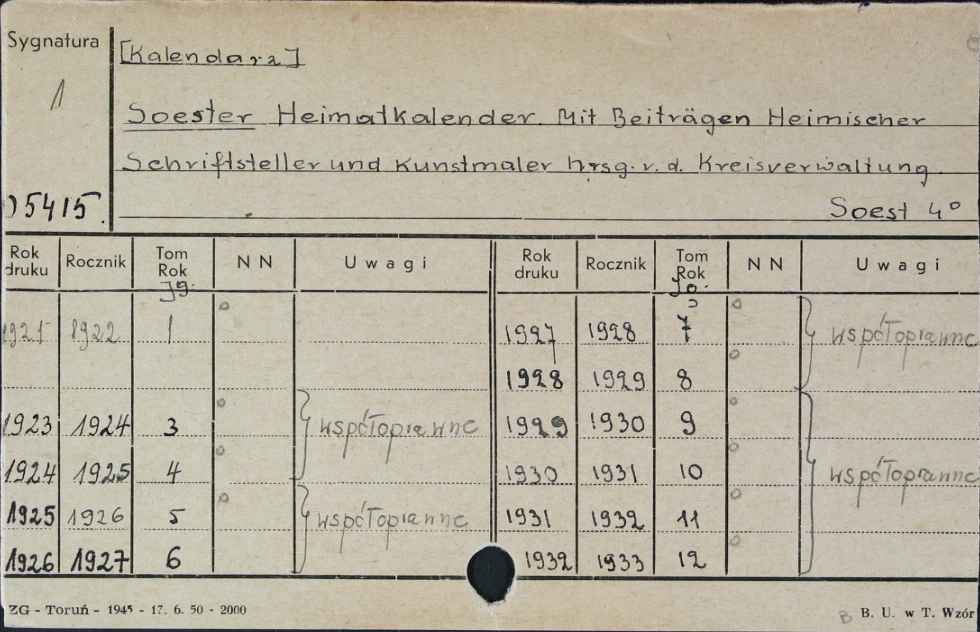 Sygnatura
[Kalendarz]
1
Soester Heimatkalender. Mit Beiträgen Heimischer
Schriftsteller und Kunstmaler hrsg. v. d. Kreisverwaltung
05415.
Soest 4°
Rok druku Rocznik Tom Rok Jg. NN Uwagi Rok druku Rocznik Tom Rok Jg. NN Uwagi
1921 1922 1 1927 1928 7 współoprawne
1928 1929 8
1923 1924 3 współoprawne 1929 1930 9
1924 1925 4 1930 1931 10 współoprawne
1925 1926 5 współoprawne 1931 1932 11
1926 1927 6 1932 1933 12
ZG - Toruń - 1945 - 17. 6. 50 - 2000 B B. U. w T. Wzór